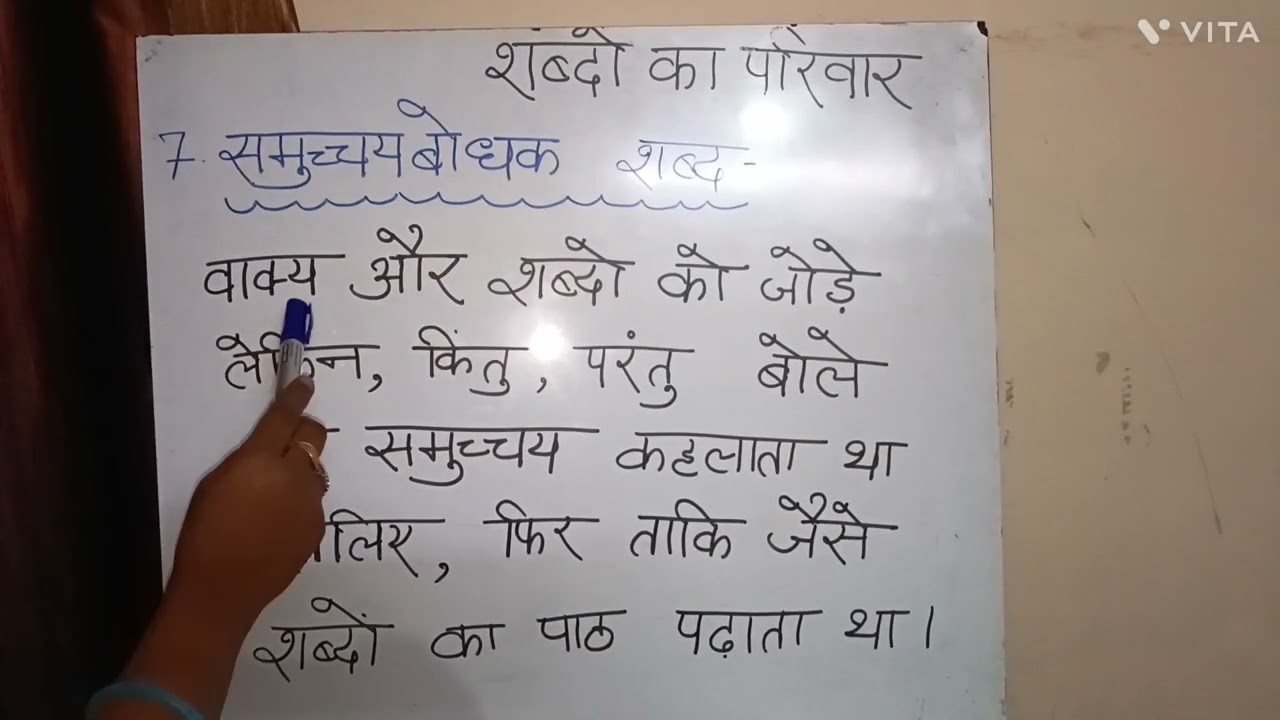 VITA
शब्दो का परिवार
7. समुच्चयबोधक शब्द-
वाक्य और शब्दो को जोड़े
लेकिन, किंतु, परंतु बोले
समुच्चय कहलाता था
फिर ताकि जैसे
शब्दों का पाठ पढ़ाता था।